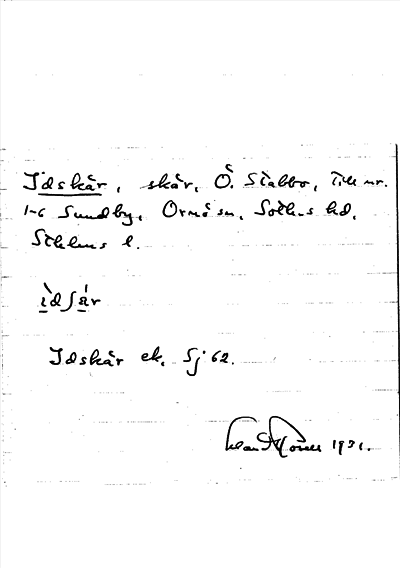 Idskär, skär, Ö. Stabbo, Till nr.
1-6 Sundby, Ornö sn, Sotl-s hd,
Sthlms l.
ìdʃár
Idskär ek. Sj 62.
1931.